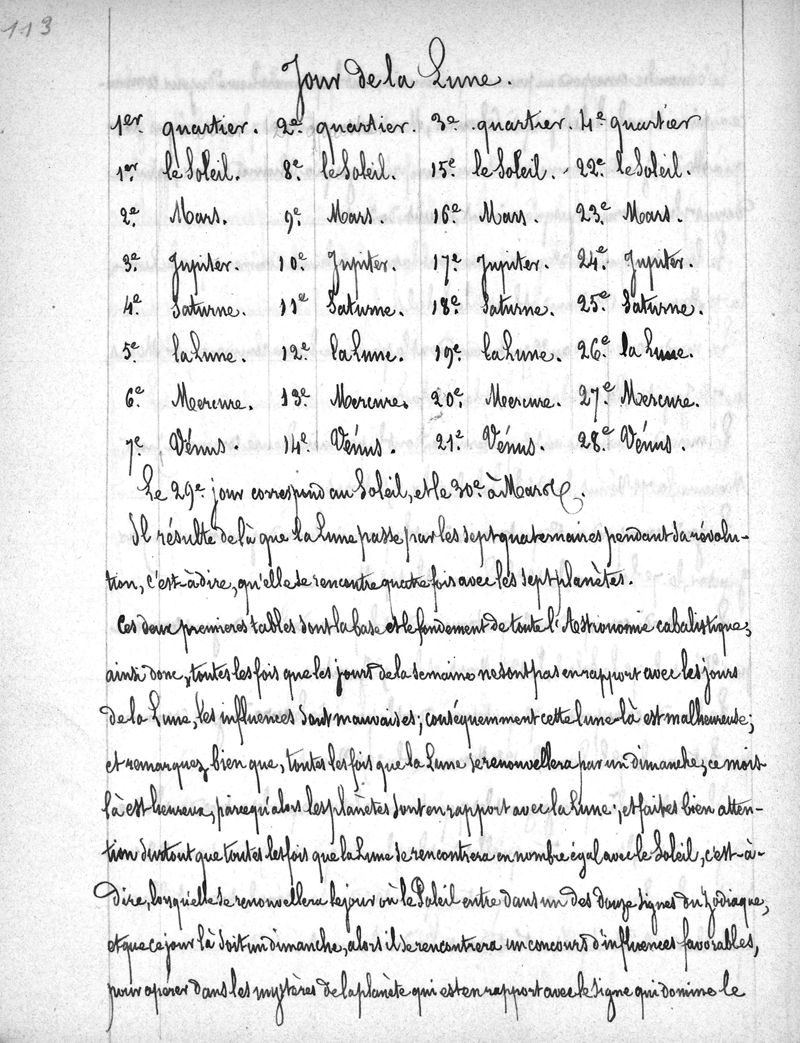 113
Jour de la Lune.
1er quartier. 2e quartier. 3e quartier. 4e quartier
1er le Soleil. 8e le Soleil. 15e le Soleil. 22e le Soleil.
2e Mars. 9e Mars. 16e Mars. 23e Mars.
3e Jupiter. 10e Jupiter. 17e Jupiter. 24e Jupiter.
4e Saturne. 11e Saturne. 18e Saturne. 25e Saturne.
5e la Lune. 12e la Lune. 19e la Lune. 26e la Lune.
6e Mercure. 13e Mercure. 20e Mercure. 27e Mercure.
7e Vénus. 14e Vénus. 21e Vénus. 28e Vénus.
Le 29e jour correspond au Soleil, et le 30e à Mars.
Il résulte de là que la Lune passe par les sept quaternaires pendant sa révolu-
tion, c'est-à dire, qu'elle se rencontre quatre fois avec les sept planètes.
Ces deux premieres tables sont la base et le fondement de toute l'Astronomie cabalistique;
ainsi donc, toutes les fois que les jours de la semaine ne sont pas en rapport avec les jours
de la Lune, les influences sont mauvaises; conséquemment cette lune-là est malheureuse;
et remarquez bien que, toutes les fois que la Lune se renouvellera par un dimanche, ce mois
là est heureux, parcequ'alors les planètes sont en rapport avec la Lune; et faites bien atten-
tion surtout que toutes les fois que la Lune se rencontrera en nombre égal avec le Soleil, c'est-à-
dire, lorsqu'elle se renouvellera le jour où le Soleil entre dans un des douze signes du Zodiaque,
et que ce jour là soit un dimanche, alors il se rencontrera un concours d'influences favorables,
pour opérer dans les mystères de la planète qui est en rapport avec le signe qui domine le